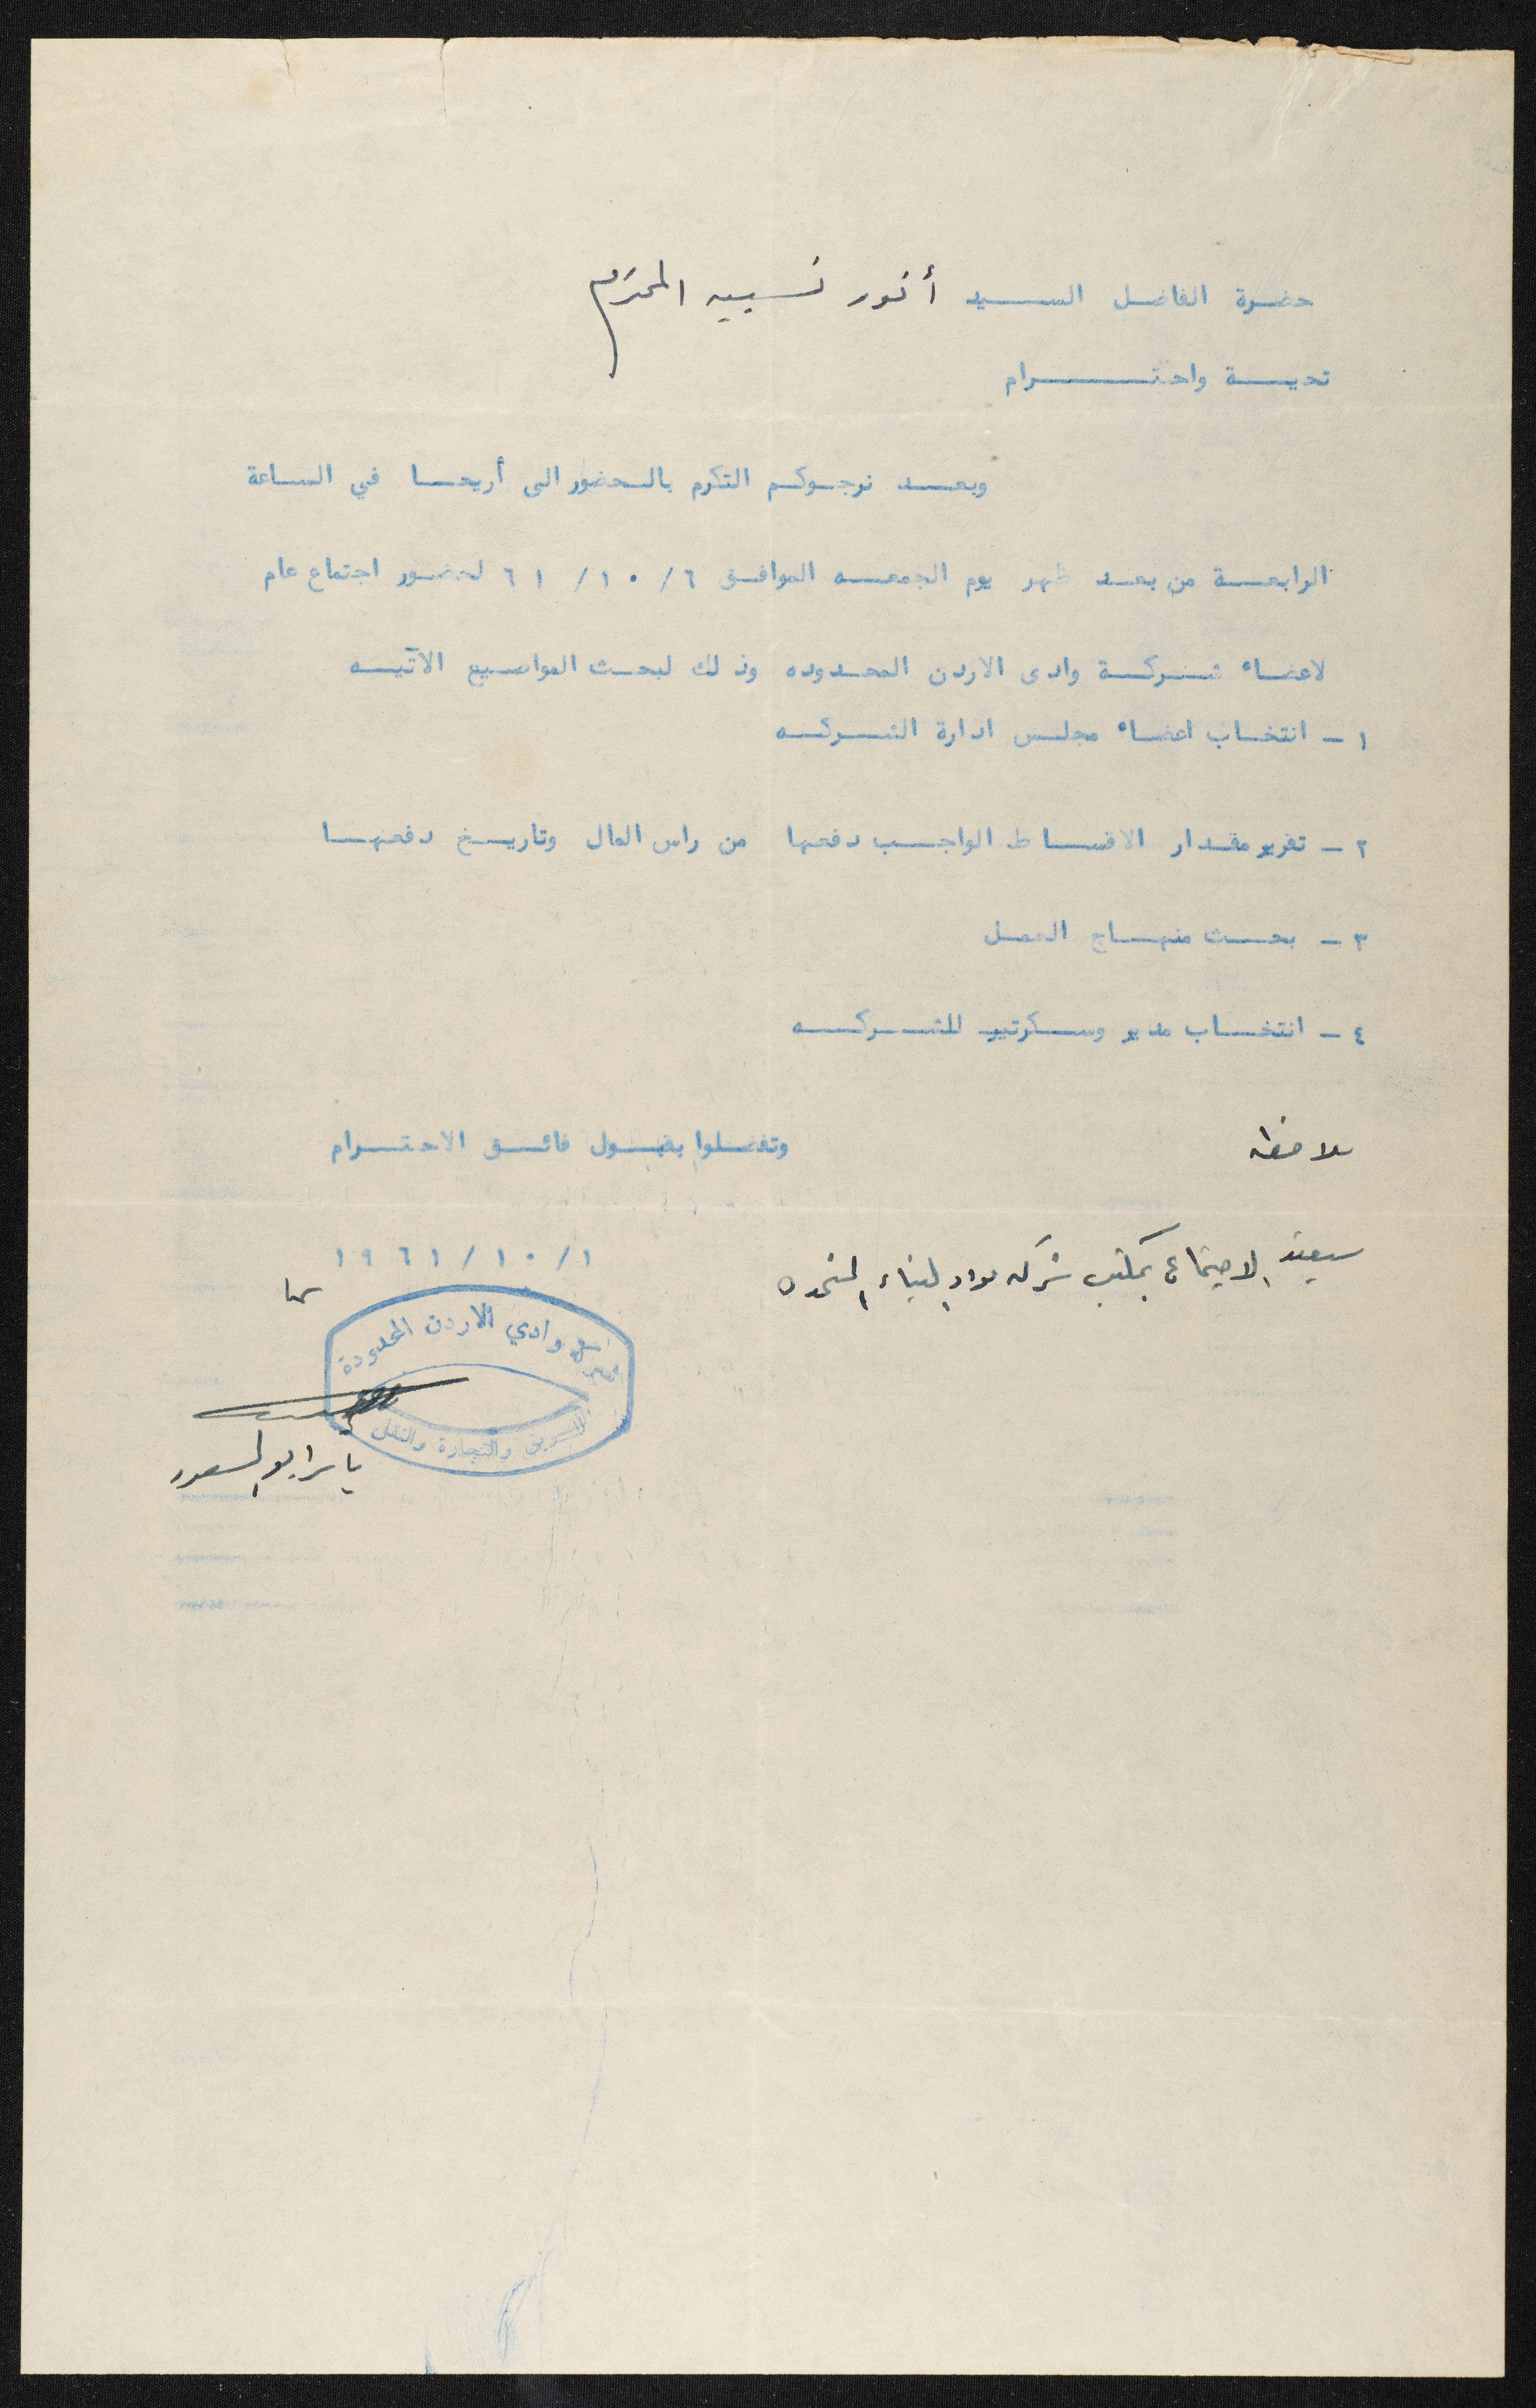 حضرة الفاضل السيد أنور نسيبه المحترم
تحية واحترام
وبعد نرجوكم التكرم بالحضور الى أريحا في الساعة
الرابعة من بعد ظهر يوم الجمعه الموافق ٦/ ١٠/ ٦١ لحضور اجتماع عام
لاعضاء شركة وادى الاردن المحدوده وذلك لبحث المواضيع الآتيه
١ - انتخاب اعضاء مجلس ادارة الشركه
٢ - تقرير مقدار الاقساط الواجب دفعها من راس المال وتاريخ دفعها
٣ - بحث منهاج العمل
٤ - انتخاب مدير وسكرتير للشركه
وتفضلوا بقبول فائق الاحترام
ملاحظه
١/ ١٠/ ١٩٦١
سيعقد الاجتماع بمكتب شركه مواد البناء المتحده
وادي الاردن المحدودة
للتسويق والتجارة والنقل
ياسر ابو السعود